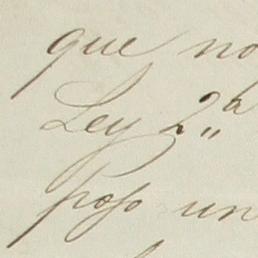 que no
Ley 2.ª
poso un